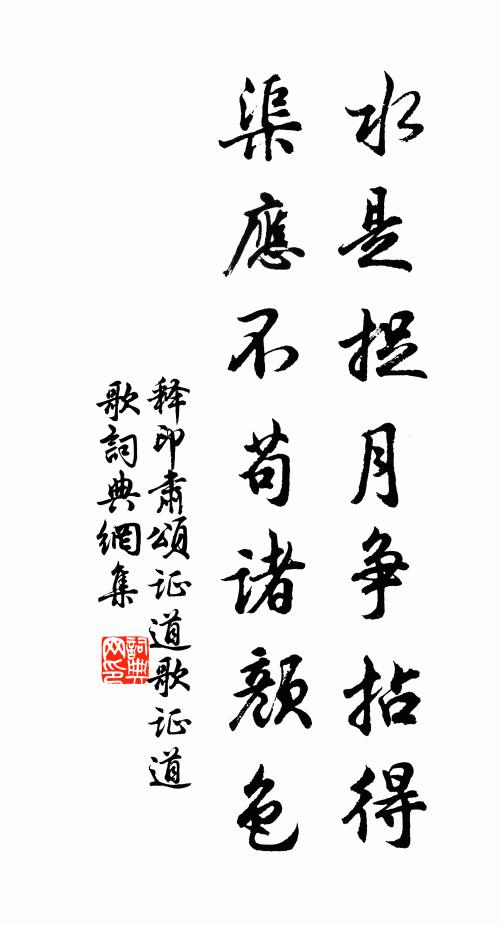 水是捉月争拈得
渠應不苟諸顏色
释印肅頌证道歌证道
歌詞典網集
詞典
网印